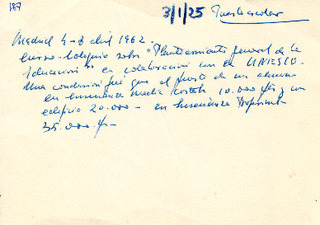 189
3/1/25 Puesto escolar
Madrid 4-8 abril 1962.
Curso-Coloquio sobre "Planteamiento general de la
Educación" en colaboración con la UNESCO.
Una conclusión fué que el puesto de un alumno
en enseñanza media costaba 10.000 pts y un
edificio 20.000 — en Enseñanza Profesional
35.000 pts —